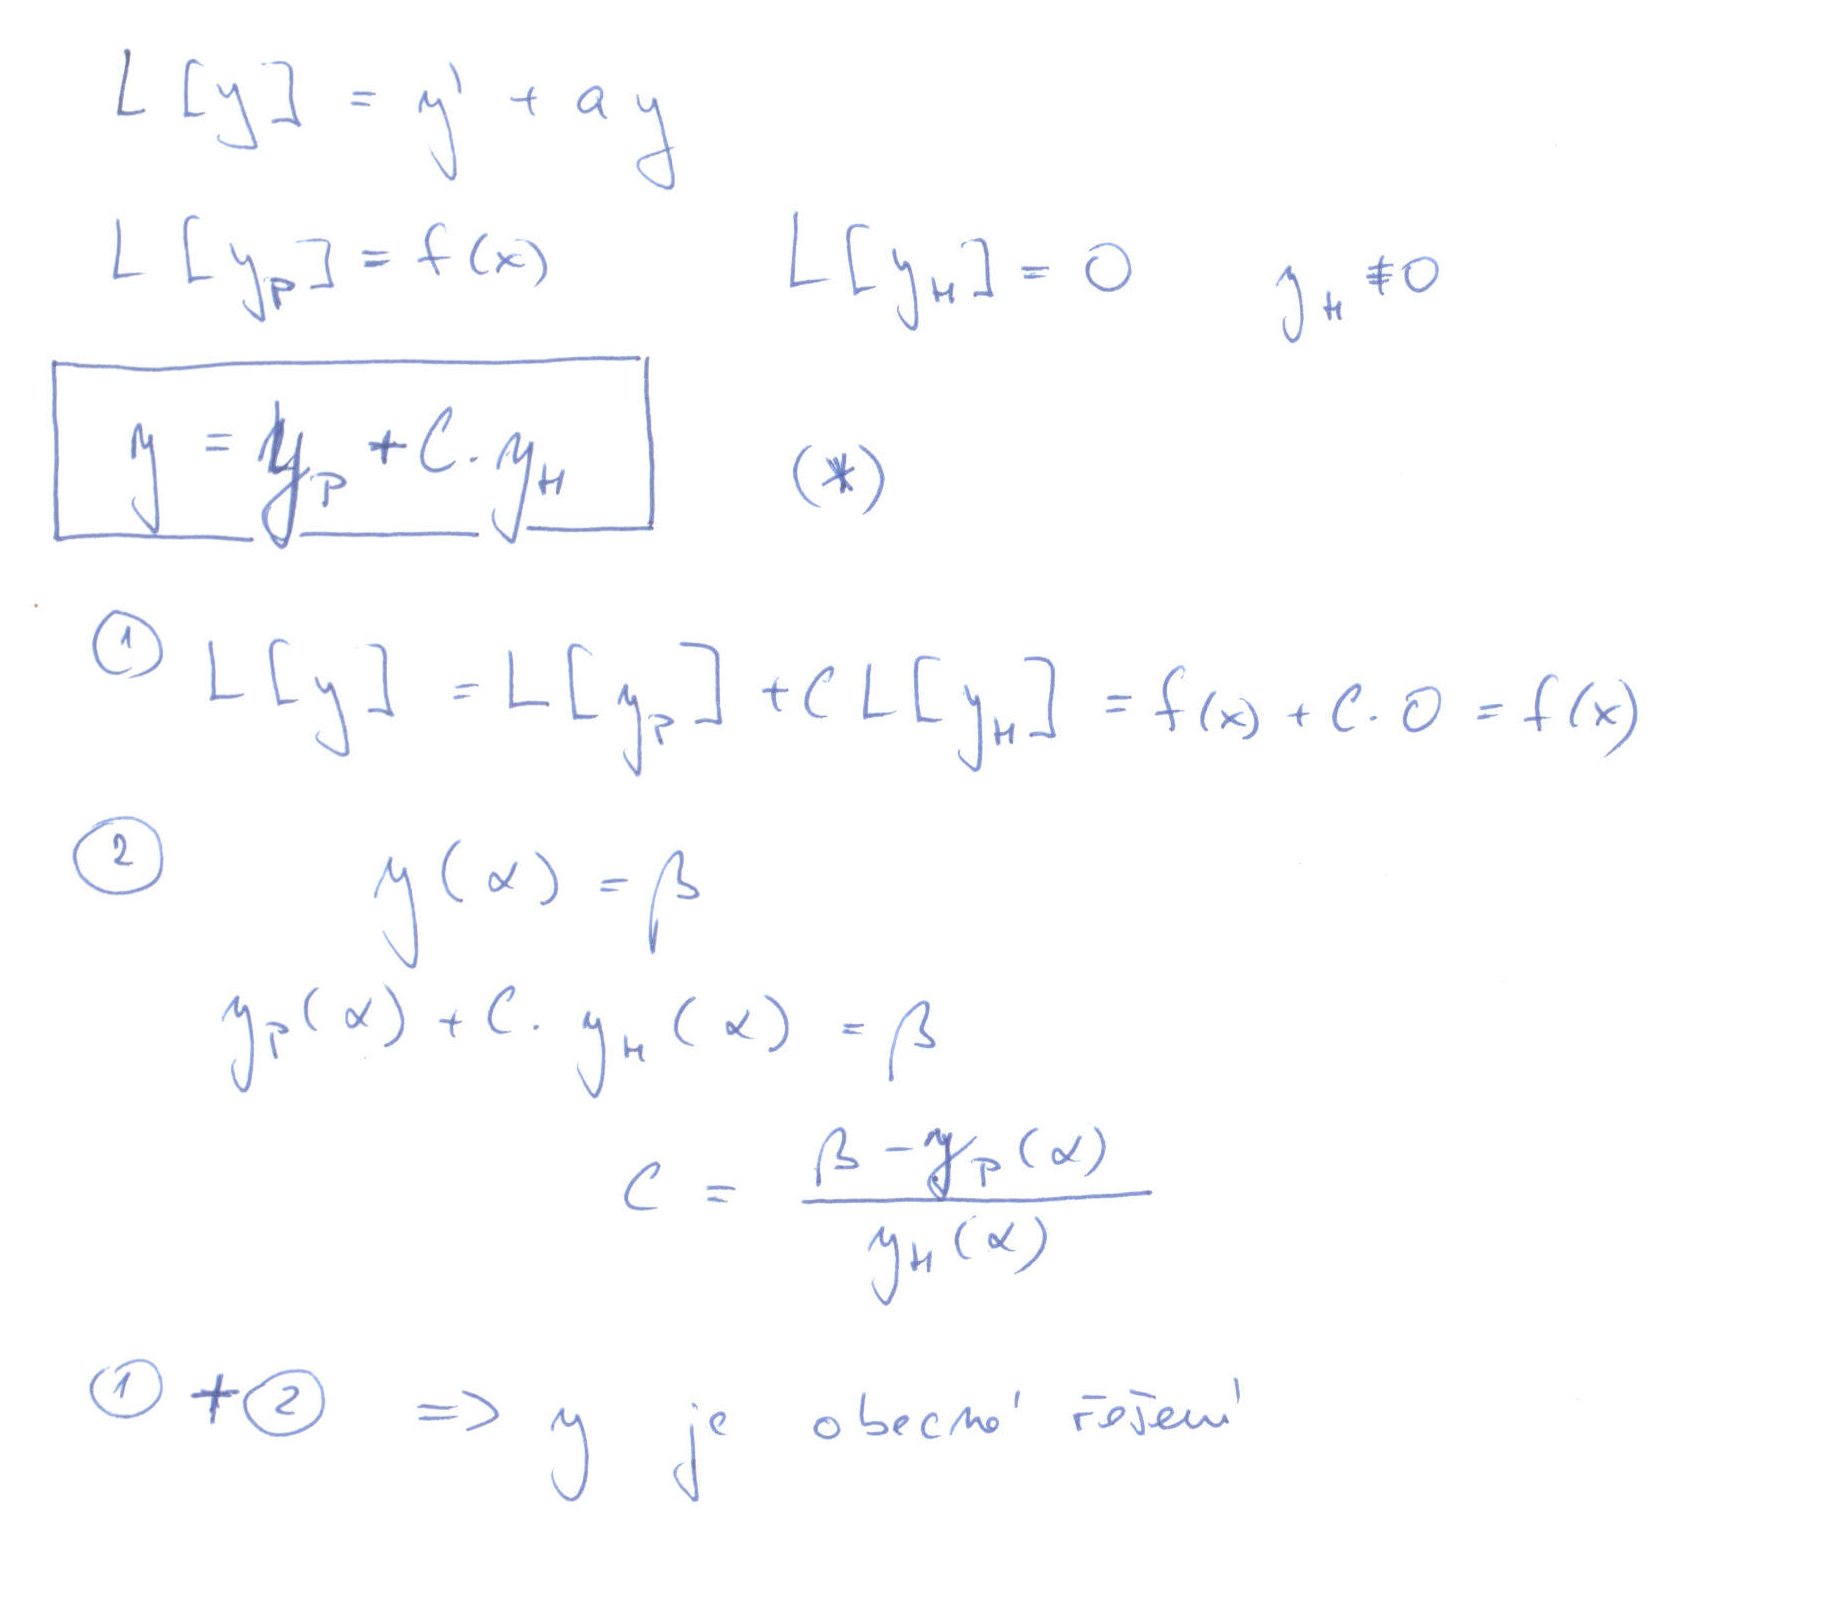 L[y] = y' + ay
L[y_P] = f(x)    L[y_H] = 0    y_H ≢ 0
y = y_P + C·y_H    (*)
① L[y] = L[y_P] + C L[y_H] = f(x) + C·0 = f(x)
② y(α) = β
y_P(α) + C·y_H(α) = β
C = (β - y_P(α)) / y_H(α)
① + ② => y je obecné řešení